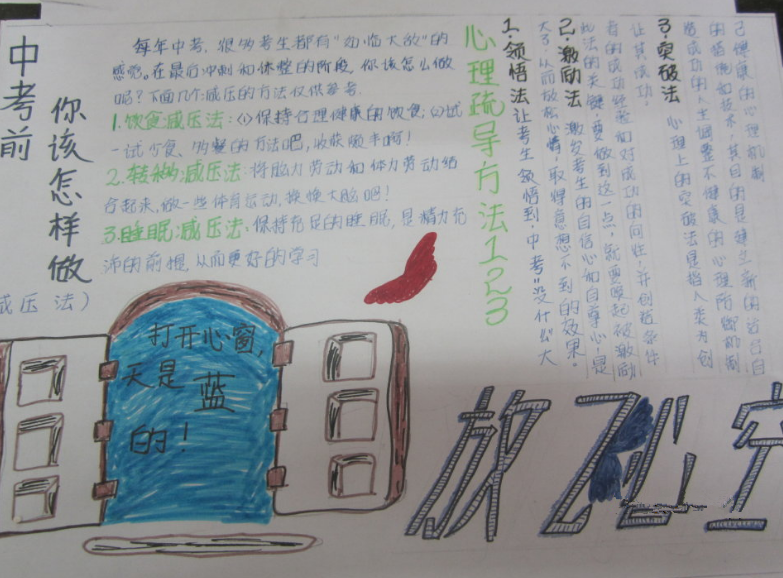 中考前
你该怎样做
减压法）
每年中考，很多考生都有“面临大敌”的
感觉。在最后冲刺和休整的阶段，你该怎么做
呢？下面几个减压的方法仅供参考
1.饮食减压法：(1)保持合理健康的饮食；(2)试
一试少食、多餐的方法吧，收获颇丰啊！
2.转换减压法：将脑力劳动和体力劳动结
合起来，做一些体育运动，换换大脑吧！
3.睡眠减压法：保持充足的睡眠，是精力充
沛的前提，从而更好的学习
心理疏导方法123
1.领悟法 让考生领悟到“中考”没什么大
大了，从而放松心情，取得意想不到的效果。
2.激励法 激发考生的自信心和自尊心，是
此法的关键，要做到这一点，就要唤起被激励
者的成功经验和对成功的向往，并创造条件
让其成功。
3.突破法 心理上的突破法是指人类为创
造成功的人生调整不健康的心理所
的措施和技术，其目的是建立新的适合自
己健康的心理机制
打开心窗，
天是蓝
的！
放飞心空